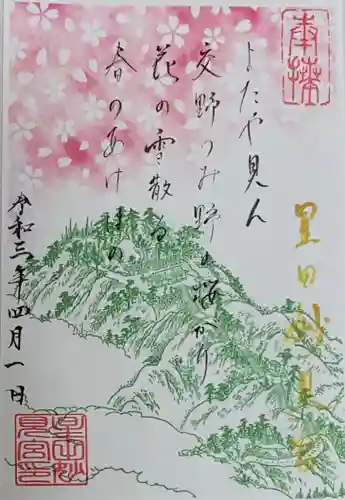 奉拝
星田妙見宮
またや見ん
交野のみ野の桜かり
花の雪散る
春のあけほの
令和三年四月一日